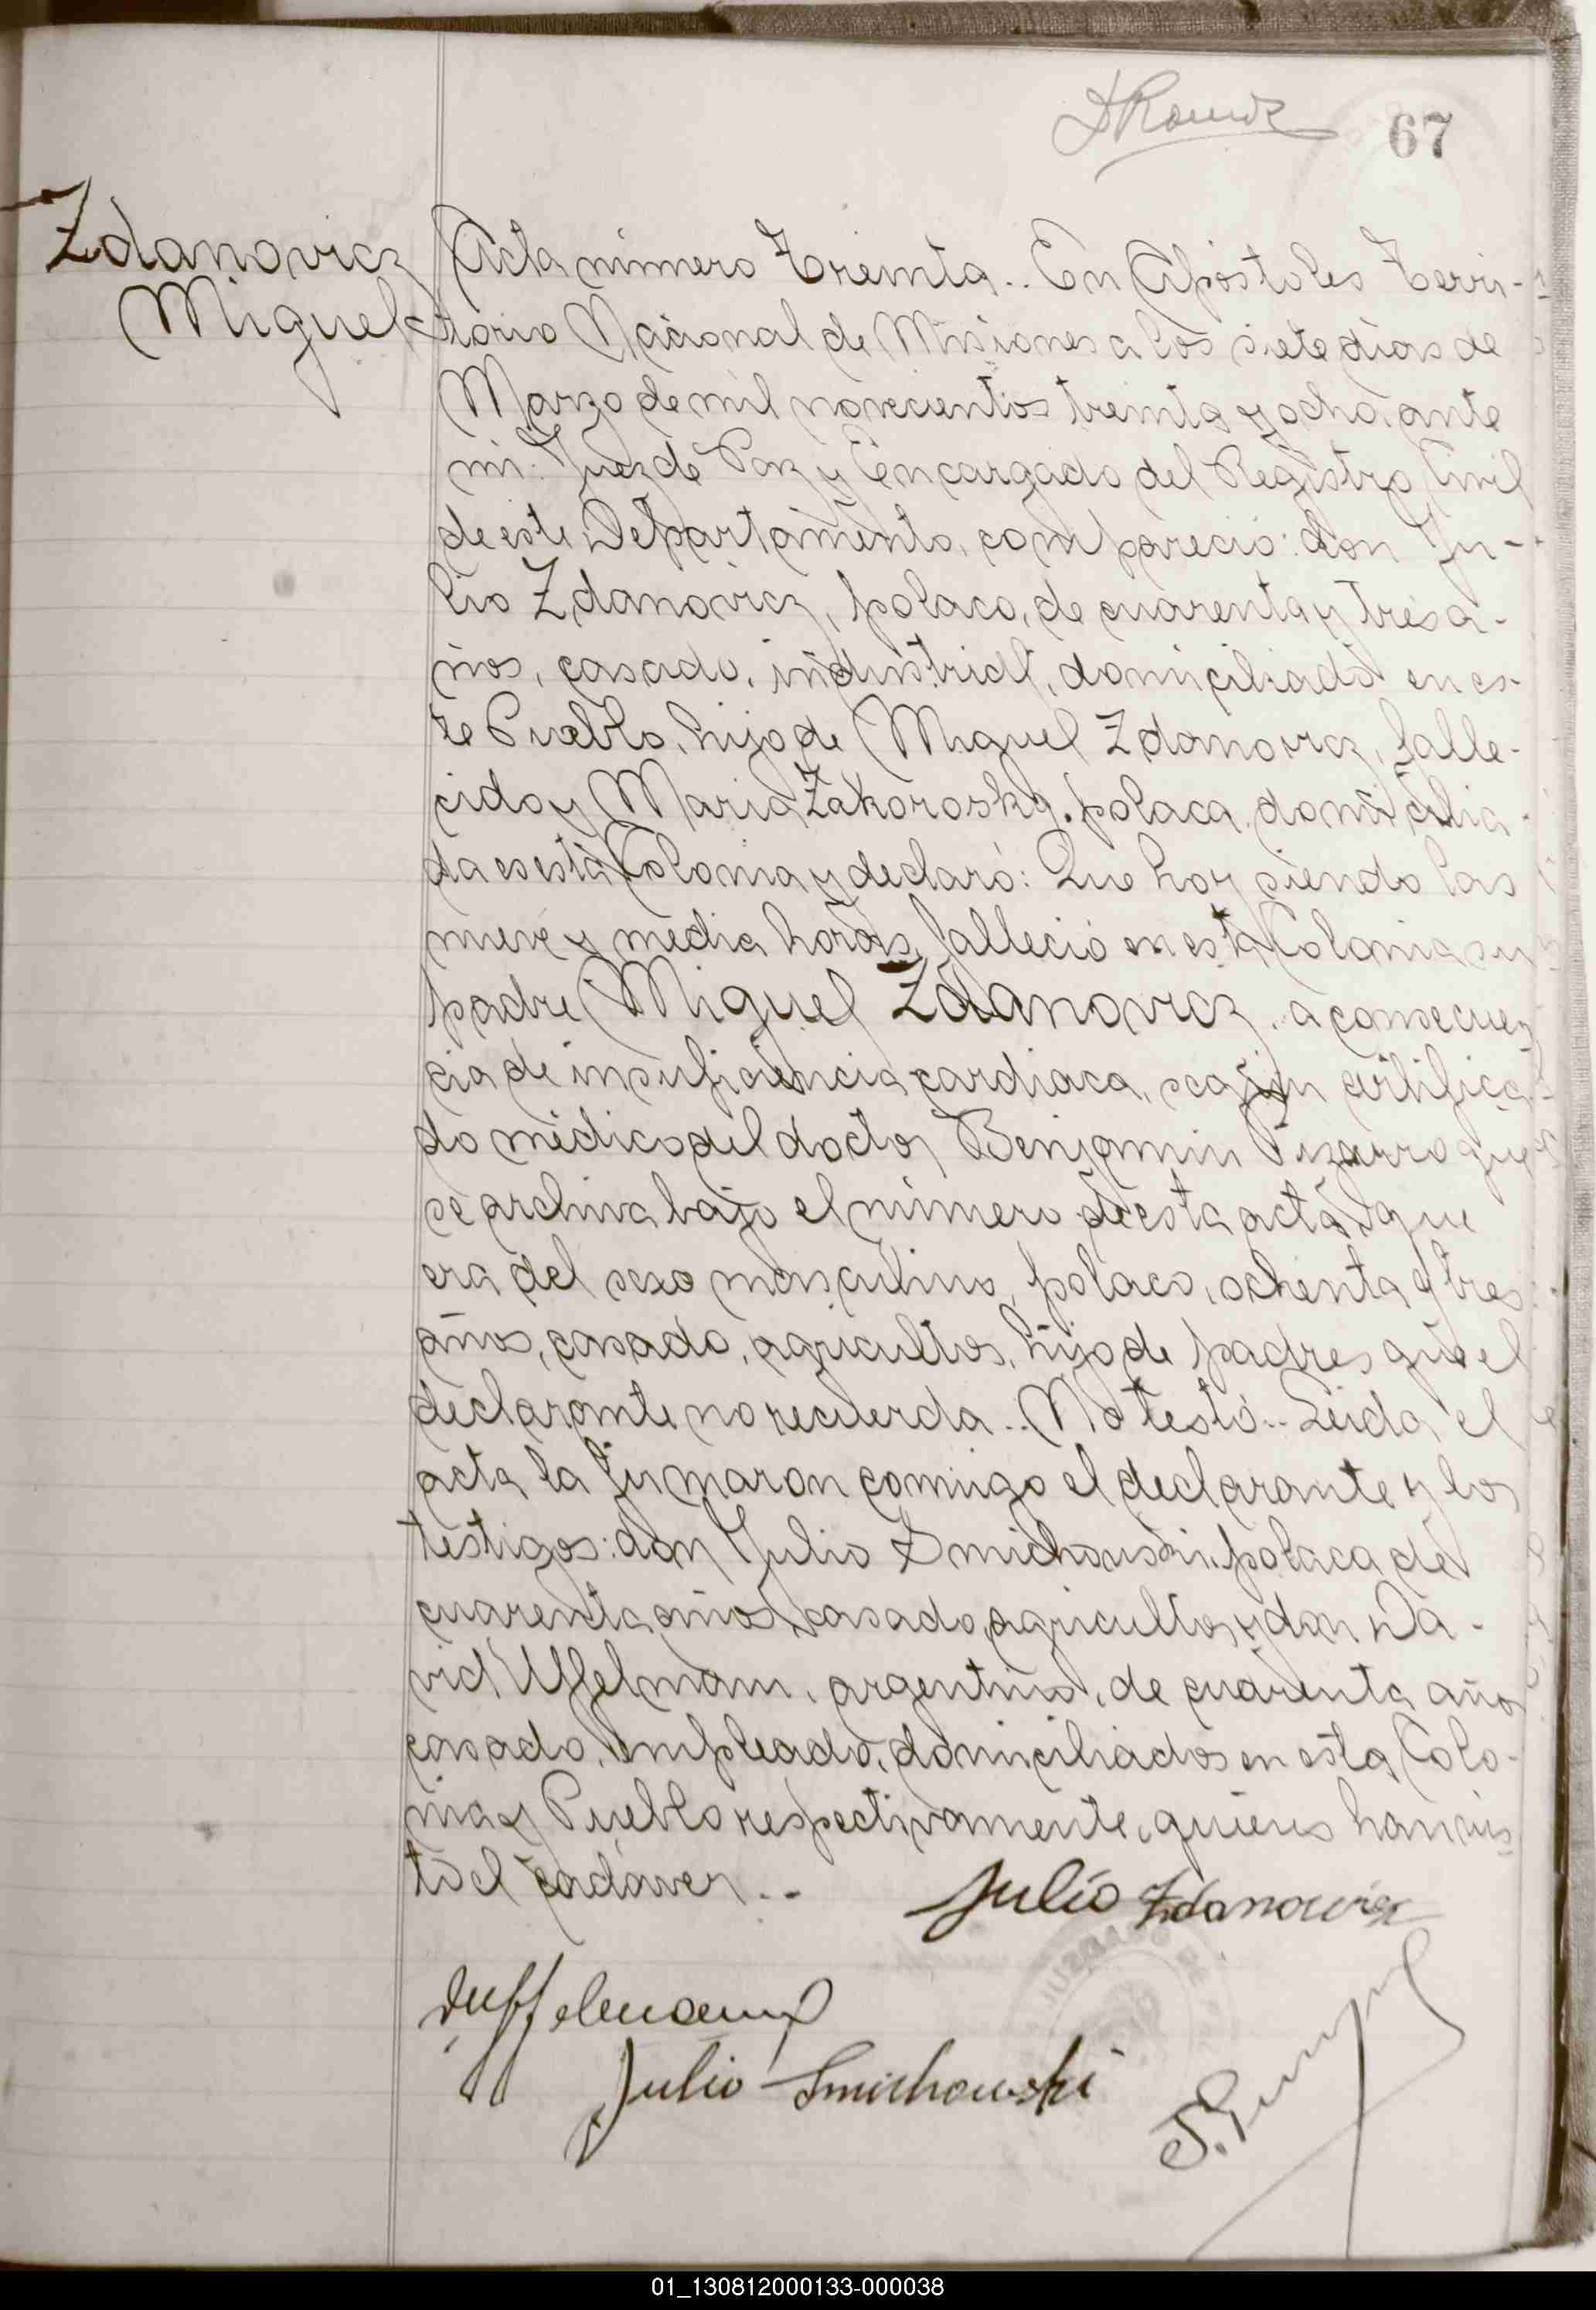 67
Zdanovicz
Miguel
Acta número Treinta.. En Apóstoles Terri-
torio Nacional de Misiones a los siete dias de
Marzo de mil novecientos treinta y ocho, ante
mi: Juez de Paz y Encargado del Registro Civil
de este Departamento, compareció: don Ju-
lio Zdanovicz, polaco, de cuarenta y tres a-
ños, casado, industrial, domiciliado en es-
te Pueblo, hijo de Miguel Zdanovicz, falle-
cido y Maria Zakoroska, polaca, domicilia-
da en esta Colonia y declaró: Que hoy siendo las
nueve y media horas, falleció en esta Colonia su
padre Miguel Zdanovicz, a consecuen
cia de insuficiencia cardiaca, según certifica-
do médico del doctor Benjamin Pizarro que
se archiva bajo el número de esta acta y que
era del sexo masculino, polaco, ochenta y tres
años, casado, agricultor, hijo de padres que el
declarante no recuerda.. No testó.. Leida el
acta la firmaron conmigo el declarante y los
testigos: don Julio Smichowski, polaca de
cuarenta años, casado, agricultor y don Da-
vid Uffelmann, argentino, de cuarenta años
casado, empleado, domiciliados en esta Colo-
nia y Pueblo respectivamente, quienes han vis-
to el cadáver..
Julio Zdanowicz
DUffelmann
Julio Smichowski
JUZGADO DE
01_130812000133-000038